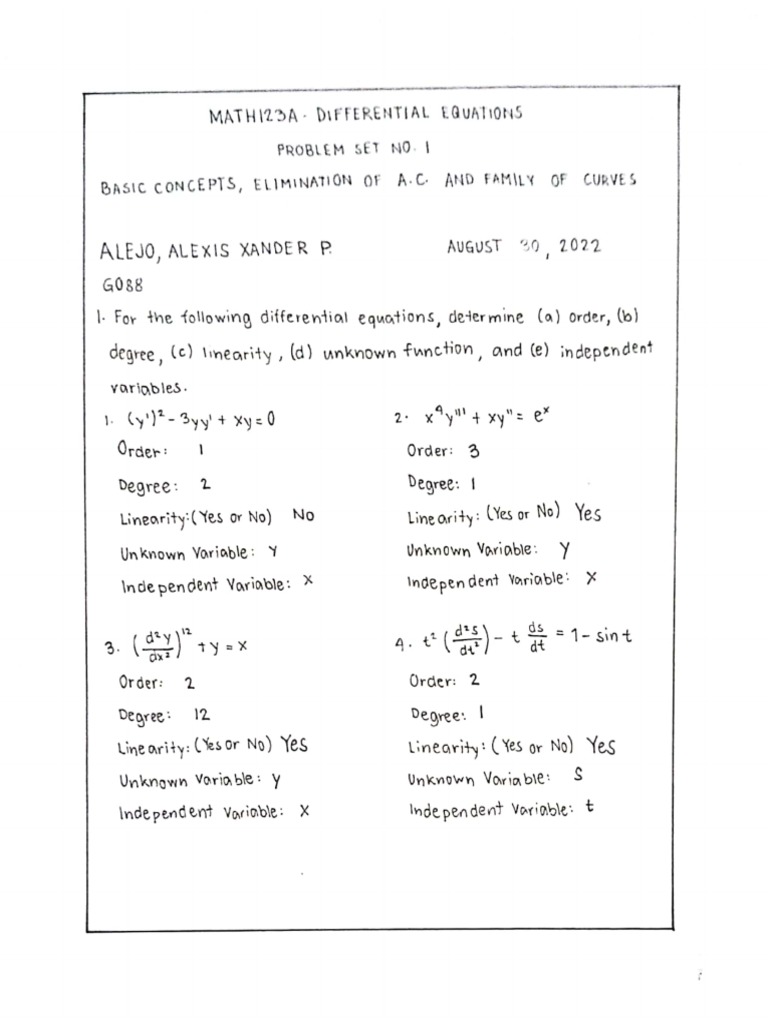 MATH123A - DIFFERENTIAL EQUATIONS
PROBLEM SET NO. 1
BASIC CONCEPTS, ELIMINATION OF A.C. AND FAMILY OF CURVES
ALEJO, ALEXIS XANDER P.
AUGUST 30, 2022
G088
1. For the following differential equations, determine (a) order, (b)
degree, (c) linearity, (d) unknown function, and (e) independent
variables.
1. (y')² - 3yy' + xy = 0
Order: 1
Degree: 2
Linearity: (Yes or No) No
Unknown Variable: Y
Independent Variable: X
2. x⁴y''' + xy'' = eˣ
Order: 3
Degree: 1
Linearity: (Yes or No) Yes
Unknown Variable: Y
Independent Variable: X
3. (d²y/dx²)¹² + y = x
Order: 2
Degree: 12
Linearity: (Yes or No) Yes
Unknown Variable: y
Independent Variable: X
4. t² (d²s/dt²) - t ds/dt = 1 - sin t
Order: 2
Degree: 1
Linearity: (Yes or No) Yes
Unknown Variable: S
Independent Variable: t